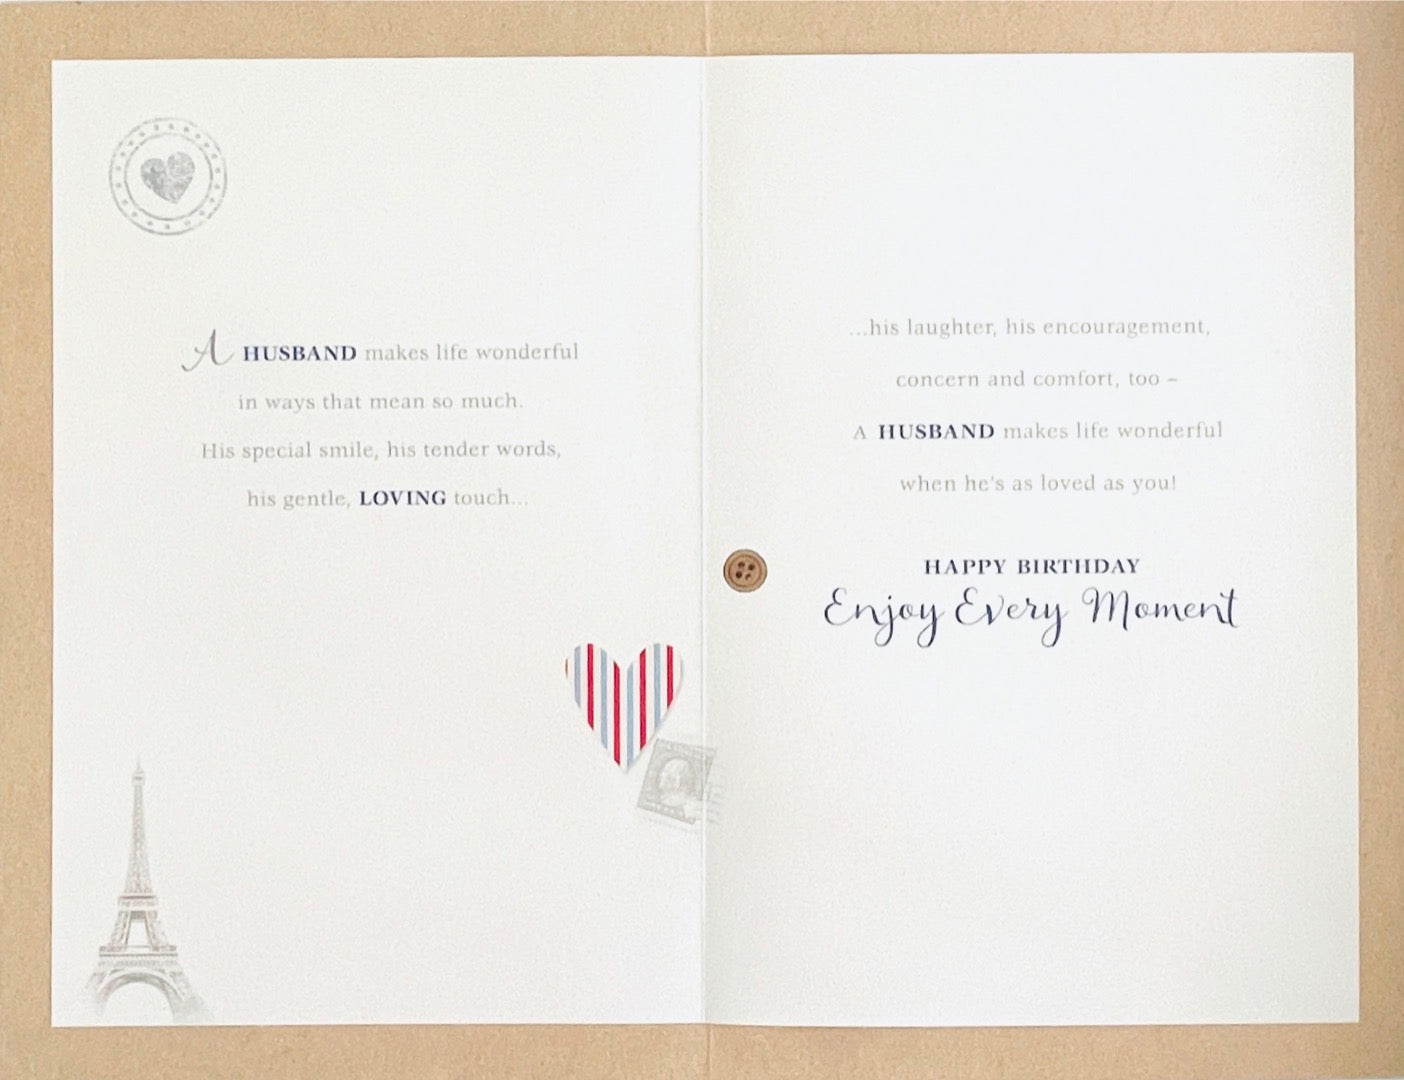 A HUSBAND makes life wonderful
in ways that mean so much.
His special smile, his tender words,
his gentle, LOVING touch...
...his laughter, his encouragement,
concern and comfort, too –
A HUSBAND makes life wonderful
when he's as loved as you!
HAPPY BIRTHDAY
Enjoy Every Moment